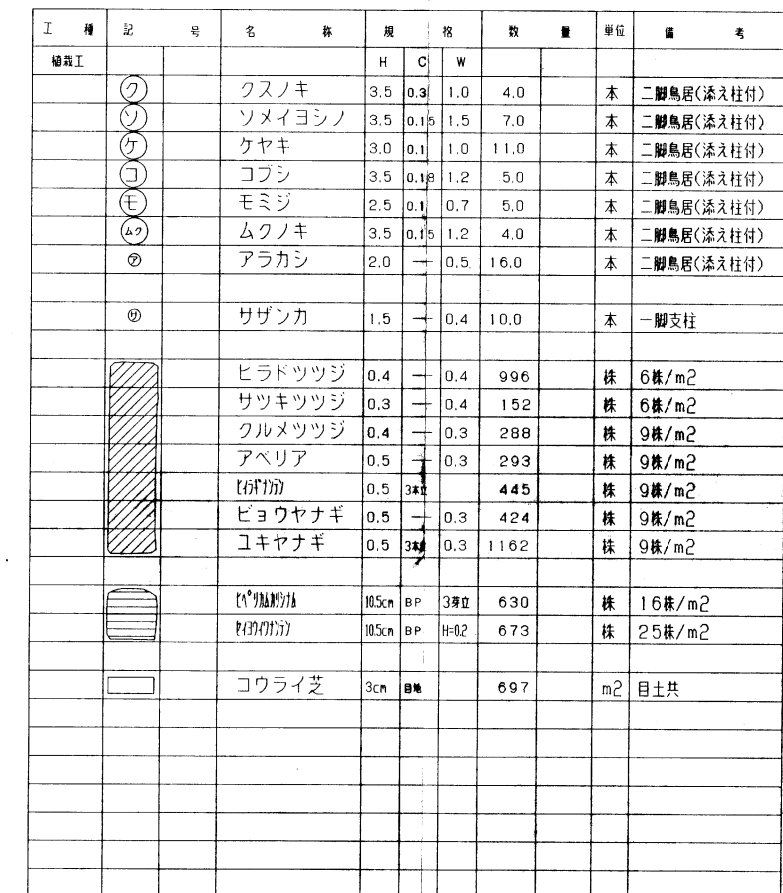 工 種 記 号 名 称 規 格 数 量 単位 備 考
植栽工 H C W
ク クスノキ 3.5 0.3 1.0 4.0 本 二脚鳥居(添え柱付)
ソ ソメイヨシノ 3.5 0.15 1.5 7.0 本 二脚鳥居(添え柱付)
ケ ケヤキ 3.0 0.1 1.0 11.0 本 二脚鳥居(添え柱付)
コ コブシ 3.5 0.18 1.2 5.0 本 二脚鳥居(添え柱付)
モ モミジ 2.5 0.1 0.7 5.0 本 二脚鳥居(添え柱付)
ムク ムクノキ 3.5 0.15 1.2 4.0 本 二脚鳥居(添え柱付)
ア アラカシ 2.0 — 0.5 16.0 本 二脚鳥居(添え柱付)
サ サザンカ 1.5 — 0.4 10.0 本 一脚支柱
ヒラドツツジ 0.4 — 0.4 996 株 6株/m2
サツキツツジ 0.3 — 0.4 152 株 6株/m2
クルメツツジ 0.4 — 0.3 288 株 9株/m2
アベリア 0.5 — 0.3 293 株 9株/m2
ヒイラギナンテン 0.5 3本立 445 株 9株/m2
ビョウヤナギ 0.5 — 0.3 424 株 9株/m2
ユキヤナギ 0.5 3本立 0.3 1162 株 9株/m2
ヒペリカムカリシナム 10.5cm BP 3芽立 630 株 16株/m2
セイヨウイワナンテン 10.5cm BP H=0.2 673 株 25株/m2
コウライ芝 3cm 目地 697 m2 目土共